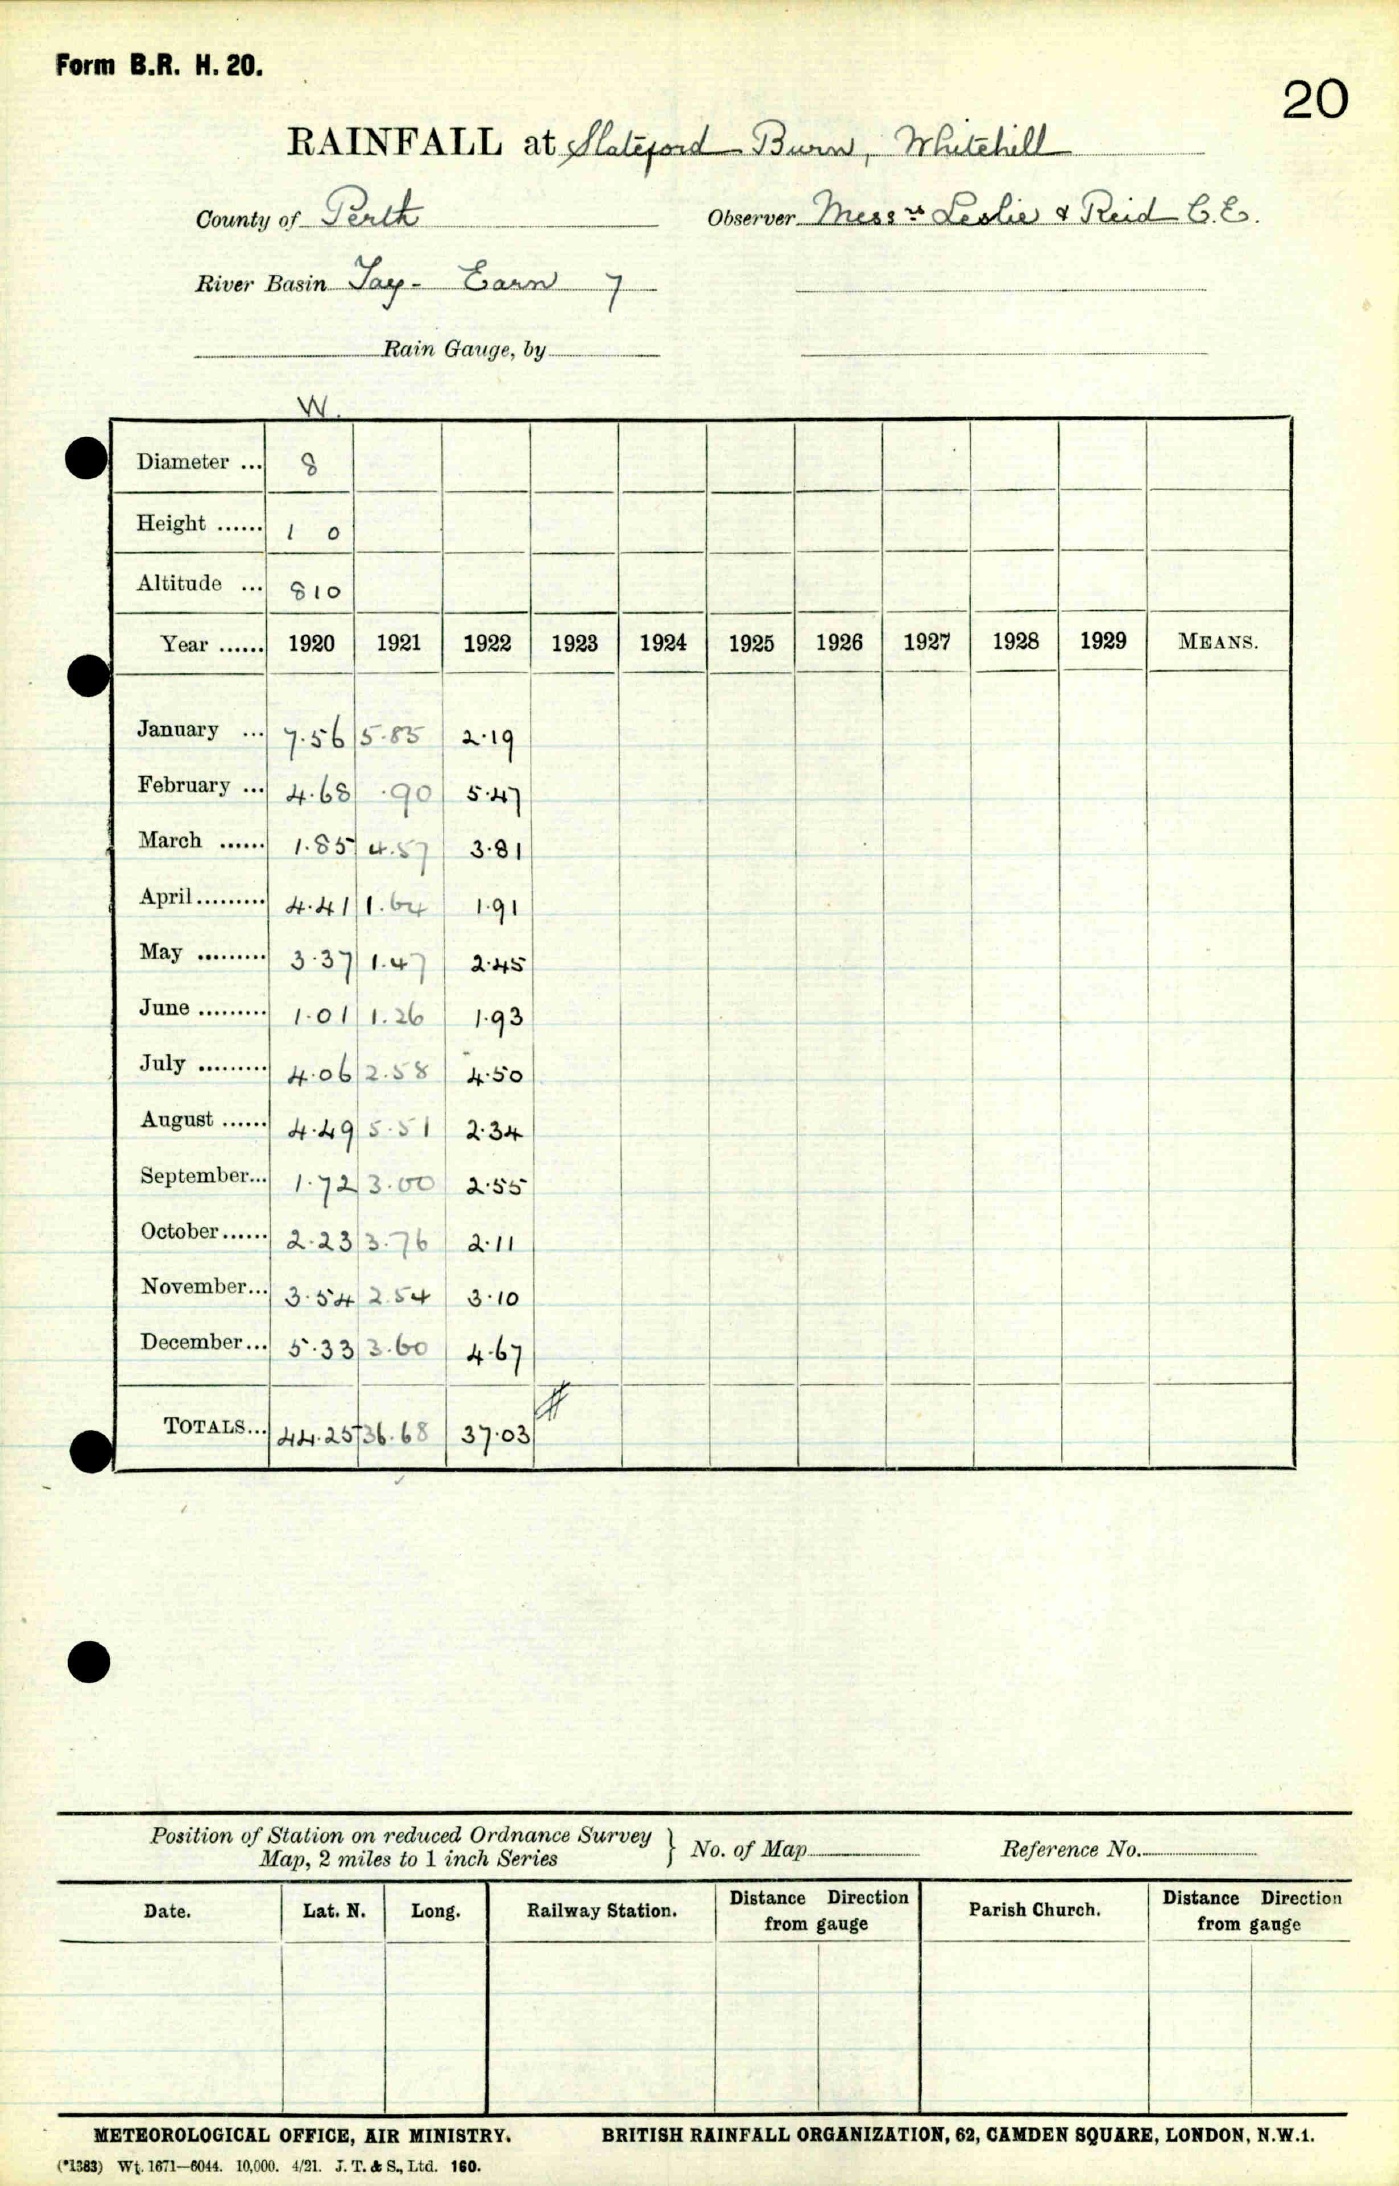 Form B.R. H. 20.
20
RAINFALL at Slateford Burn, Whitehill
County of Perth Observer Messrs Leslie & Reid C.E.
River Basin Tay - Earn 7
Rain Gauge, by
W.
Diameter ... 8
Height ...... 1 0
Altitude ... 810
Year ...... 1920 1921 1922 1923 1924 1925 1926 1927 1928 1929 MEANS.
January ... 7.56 5.85 2.19
February ... 4.68 .90 5.47
March ...... 1.85 4.57 3.81
April ......... 4.41 1.64 1.91
May ......... 3.37 1.47 2.45
June ......... 1.01 1.26 1.93
July ......... 4.06 2.58 4.50
August ...... 4.49 5.51 2.34
September... 1.72 3.00 2.55
October...... 2.23 3.76 2.11
November... 3.54 2.54 3.10
December... 5.33 3.60 4.67
TOTALS... 44.25 36.68 37.03
Position of Station on reduced Ordnance Survey
Map, 2 miles to 1 inch Series } No. of Map Reference No.
Date. Lat. N. Long. Railway Station. Distance from gauge Direction Parish Church. Distance from gauge Direction
METEOROLOGICAL OFFICE, AIR MINISTRY. BRITISH RAINFALL ORGANIZATION, 62, CAMDEN SQUARE, LONDON, N.W.1.
(*1383) Wt. 1671—6044. 10,000. 4/21. J. T. & S., Ltd. 160.